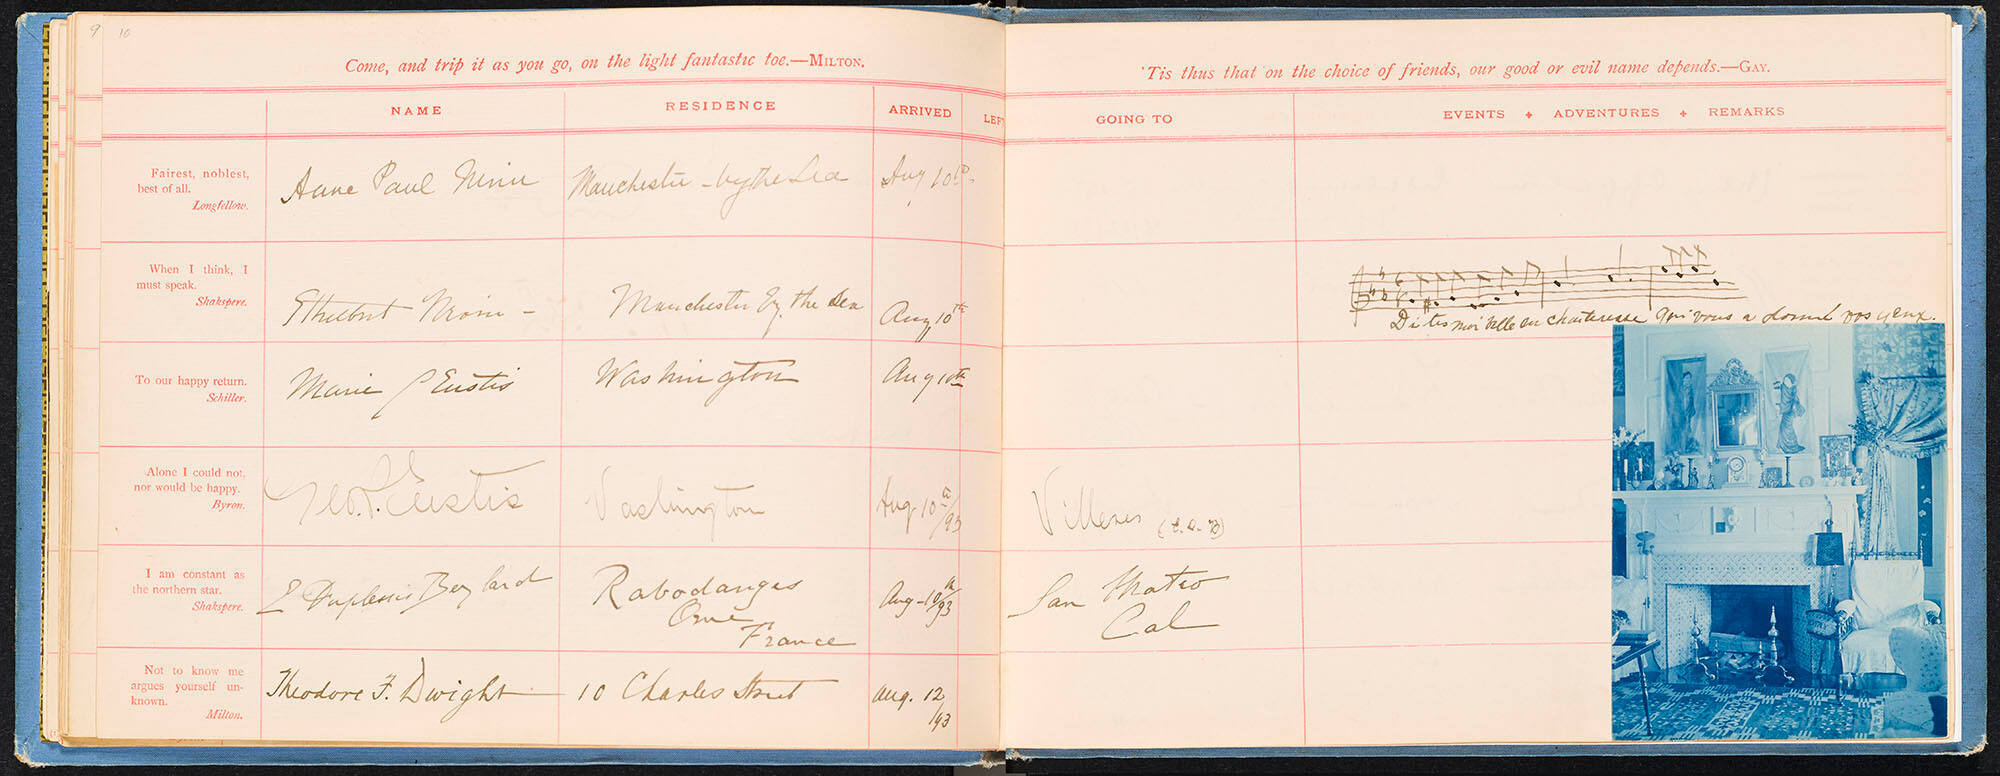 9 10
Come, and trip it as you go, on the light fantastic toe.—MILTON.
NAME RESIDENCE ARRIVED LEFT
Fairest, noblest,
best of all.
Longfellow.
Manchester-by the Sea Aug 10th
When I think, I
must speak.
Shakspere.
Ethelbert Nevin – Manchester by the Sea Aug 10th
To our happy return.
Schiller.
Marie Eustis Washington Aug 10th
Alone I could not,
nor would be happy.
Byron.
Geo. P. Eustis Washington Aug 10th/93
I am constant as
the northern star.
Shakspere.
Rabodanges
Orne
France
Aug-10th/93
Not to know me
argues yourself un-
known.
Milton.
Theodore F. Dwight 10 Charles Street Aug. 12/93
'Tis thus that on the choice of friends, our good or evil name depends.—GAY.
GOING TO EVENTS + ADVENTURES + REMARKS
Dites moi belle enchanteresse qui vous a donné vos yeux.
San Mateo
Cal